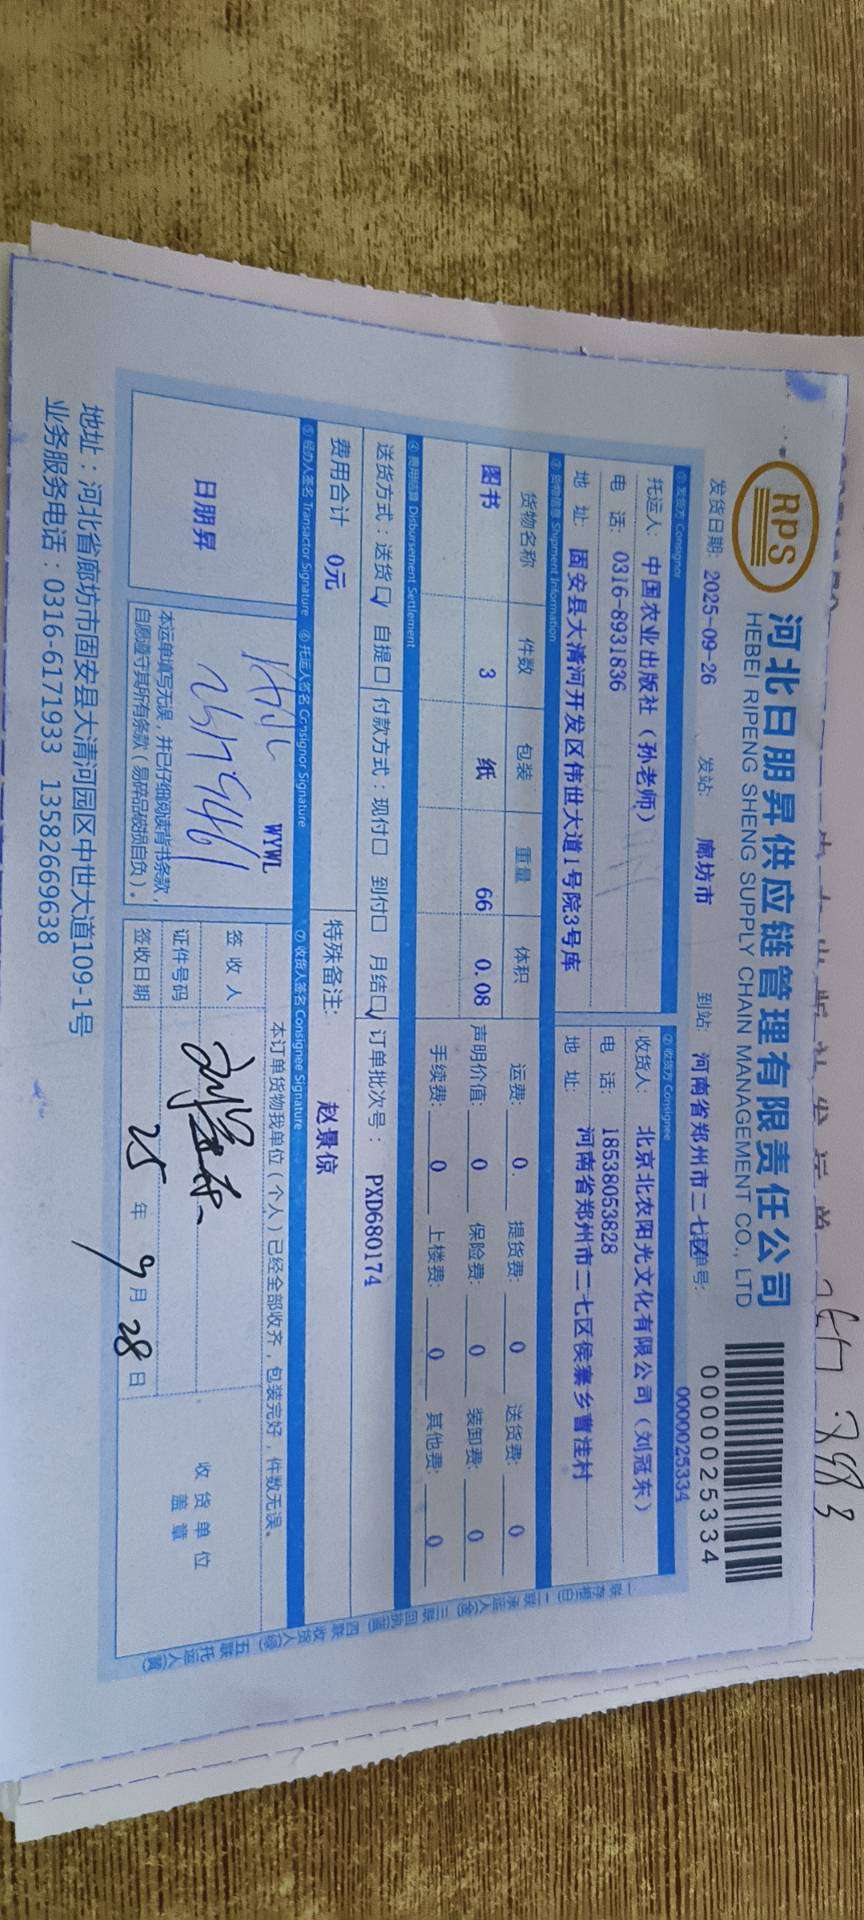 RPS
河北日朋昇供应链管理有限责任公司
HEBEI RIPENG SHENG SUPPLY CHAIN MANAGEMENT CO., LTD
0000025334
发货日期: 2025-09-26 发站: 廊坊市 到站: 河南省郑州市二七区 单号: 0000025334
① 发货方 Consignor ② 收货方 Consignee
托运人: 中国农业出版社（孙老师） 收货人: 北京北农阳光文化有限公司（刘冠东）
电 话: 0316-8931836 电 话: 18538053828
地 址: 固安县大清河开发区伟世大道1号院3号库 地 址: 河南省郑州市二七区侯寨乡曹洼村
③ 货物信息 Shipment Information
货物名称 件数 包装 重量 体积 运费: 0 提货费: 0 送货费: 0
图书 3 纸 66 0.08 声明价值: 0 保险费: 0 装卸费: 0
手续费: 0 上楼费: 0 其他费: 0
④ 费用结算 Disbursement Settlement
送货方式：送货☑ 自提□ 付款方式：现付□ 到付□ 月结☑ 订单批次号： PXD680174
费用合计 0元 特殊备注: 赵景惊
⑤ 经办人签名 Transactor Signature ⑥ 托运人签名 Consignor Signature ⑦ 收货人签名 Consignee Signature
日朋昇
WYWL
本运单填写无误，并已仔细阅读背书条款，
自愿遵守其所有条款（易碎品破损自负）。
本订单货物我单位（个人）已经全部收齐，包装完好，件数无误。
签 收 人 刘冠东
证件号码
签收日期 25 年 9 月 28 日
收 货 单 位
盖 章
地址：河北省廊坊市固安县大清河园区中世大道109-1号
业务服务电话：0316-6171933 13582669638